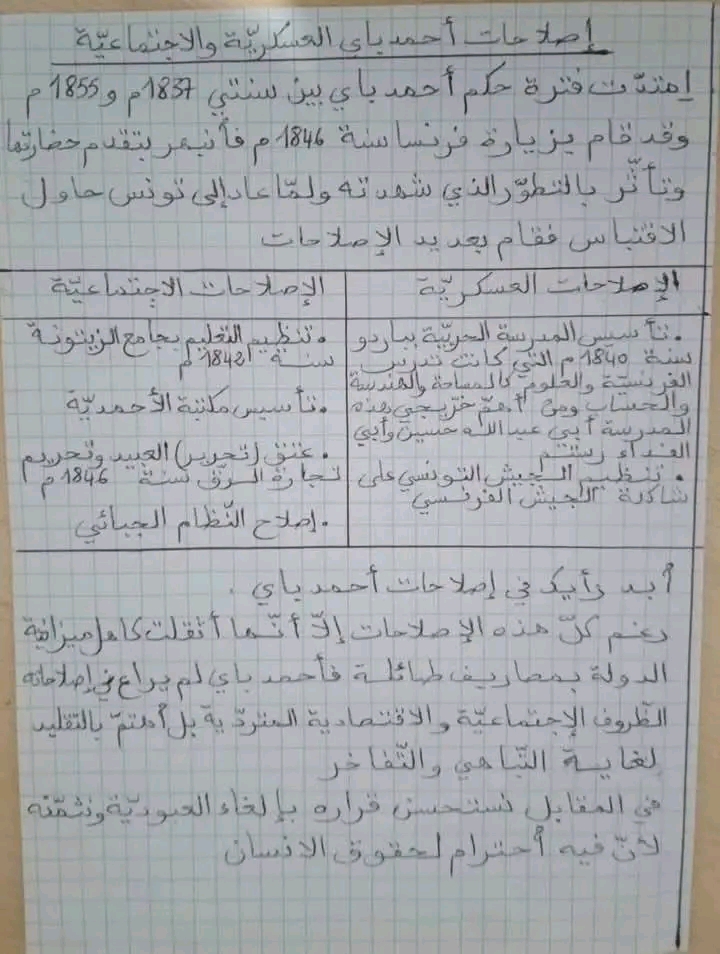 إصلاحات أحمد باي العسكريّة والاجتماعيّة
إمتدّت فترة حكم أحمد باي بين سنتي 1837م و 1855م
وقد قام بزيارة فرنسا سنة 1846م فأنبهر بتقدم حضارتها
وتأثّر بالتطوّر الذي شهدته ولمّا عاد إلى تونس حاول
الاقتباس فقام بعديد الإصلاحات
الإصلاحات العسكريّة
• تأسيس المدرسة الحربيّة بباردو
سنة 1840م التي كانت تدرس
الفرنسيّة والعلوم كالمساحة والهندسة
والحساب ومن أهمّ خرّيجي هذه
المدرسة أبي عبد الله حسين وأبي
الفداء رستم
• تنظيم الجيش التونسي على
شاكلة الجيش الفرنسي
الإصلاحات الاجتماعيّة
• تنظيم التعليم بجامع الزيتونة
سنة 1842م
• تأسيس مكتبة الأحمديّة
• عتق (تحرير) العبيد وتحريم
تجارة الرّق سنة 1846م
• إصلاح النّظام الجبائي
أبد رأيك في إصلاحات أحمد باي .
رغم كلّ هذه الإصلاحات إلاّ أنّها أثقلت كاهل ميزانية
الدولة بمصاريف طائلة فأحمد باي لم يراع في إصلاحاته
الظّروف الإجتماعيّة والاقتصادية المتردّية بل أهتمّ بالتقليد
لغاية التّباهي والتّفاخر
في المقابل نستحسن قراره بإلغاء العبوديّة ونثمّنه
لأنّ فيه أحترام لحقوق الانسان